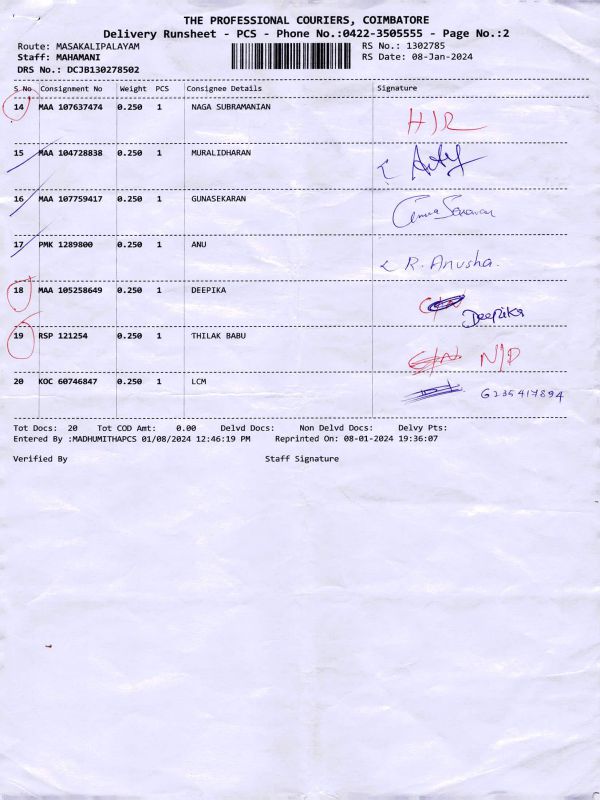 THE PROFESSIONAL COURIERS, COIMBATORE
Delivery Runsheet - PCS - Phone No.:0422-3505555 - Page No.:2
Route: MASAKALIPALAYAM RS No.: 1302785
Staff: MAHAMANI RS Date: 08-Jan-2024
DRS No.: DCJB130278502
S No Consignment No Weight PCS Consignee Details Signature
14 MAA 107637474 0.250 1 NAGA SUBRAMANIAN
15 MAA 104728838 0.250 1 MURALIDHARAN
16 MAA 107759417 0.250 1 GUNASEKARAN
17 PMK 1289800 0.250 1 ANU R. Anusha.
18 MAA 105258649 0.250 1 DEEPIKA Deepika
19 RSP 121254 0.250 1 THILAK BABU N/D
20 KOC 60746847 0.250 1 LCM 6235417894
Tot Docs: 20 Tot COD Amt: 0.00 Delvd Docs: Non Delvd Docs: Delvy Pts:
Entered By :MADHUMITHAPCS 01/08/2024 12:46:19 PM Reprinted On: 08-01-2024 19:36:07
Verified By Staff Signature